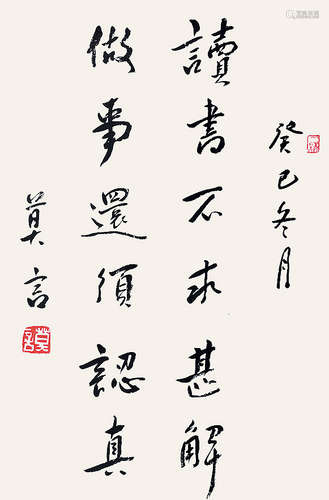 癸巳冬月
讀書不求甚解
做事還須認真
莫言
莫言